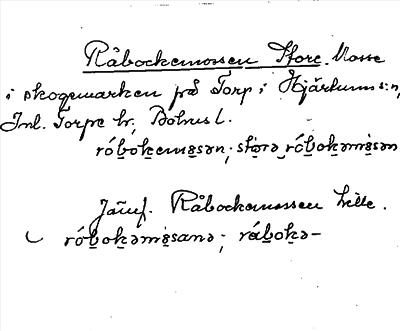 Råbockemossen Store. Mosse
i skogsmarken på Torp i Hjärtums sn,
Inl. Torpe hr, Bohusl.
róbokemåsən; stórə róbokəmåsən
Jämf. Råbockemossen Lille.
róbokəmåsanə; rábokə-